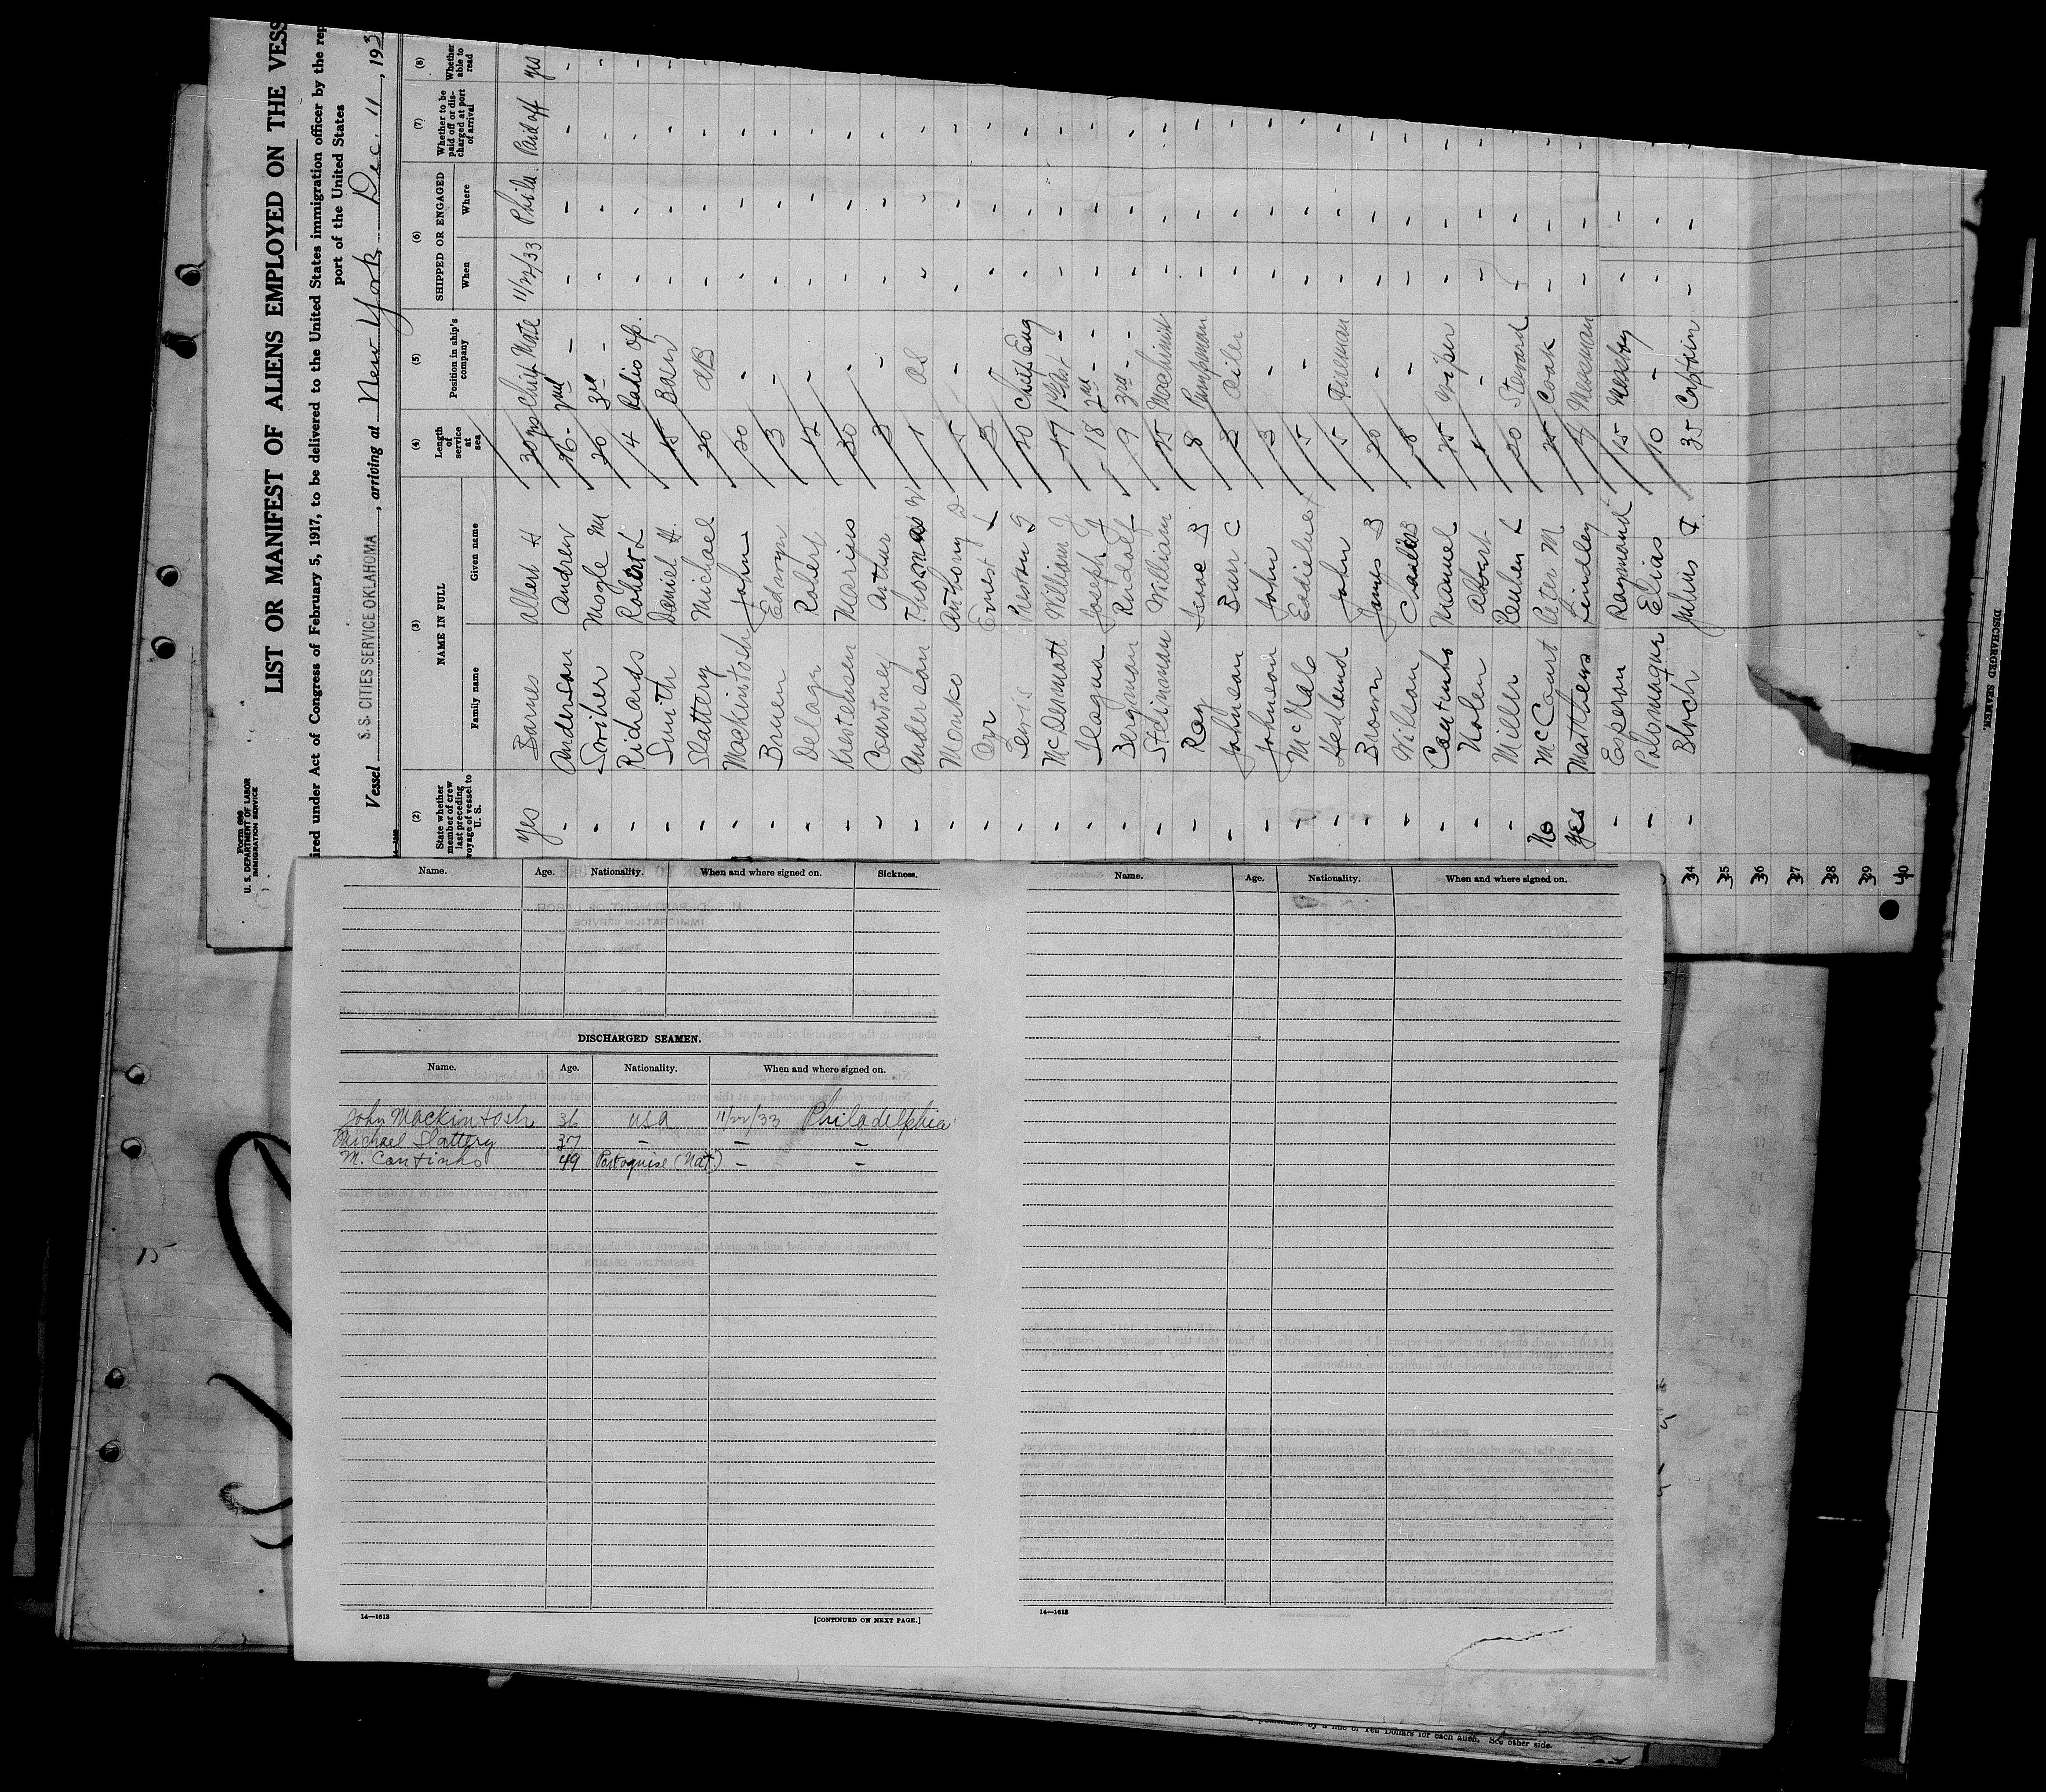 Form 680
U. S. DEPARTMENT OF LABOR
IMMIGRATION SERVICE
LIST OR MANIFEST OF ALIENS EMPLOYED ON THE VESS
ired under Act of Congress of February 5, 1917, to be delivered to the United States immigration officer by the rep
port of the United States
Vessel S. S. CITIES SERVICE OKLAHOMA, arriving at New York Dec. 11, 193
(2) (3) (4) (5) (6) (7) (8)
State whether member of crew last preceding voyage of vessel to U. S.
NAME IN FULL
Family name Given name
Length of service at sea
Position in ship's company
SHIPPED OR ENGAGED
When Where
Whether to be paid off or discharged at port of arrival
Whether able to read
yes Barnes Albert H 30 yrs Chief Mate 11/22/33 Phila. Paid off yes
- Anderson Andrew 26 - 2nd - - - - -
- Mogle M 20 3rd - - - - -
- Richards Robert L 4 Radio Op. - - - -
- Smith Daniel H. 15 Bosn - - - -
- Slattery Michael 20 AB - - - -
- Mackintosh John 20 - - - - -
- Bruen Edwyn 3 - - - - -
- Delago Robert 12 - - - - -
- Krestensen Marius 30 - - - - -
- Courtney Arthur 3 - - - - -
- Anderson Thomas W 1 OS - - - -
- Monko Anthony D 5 - - - - -
- Orr Ernest L 3 - - - -
- Lewis Preston G 20 Chief Eng - - - -
- McDermott William J 17 1st - - - -
- Ilagua Joseph J 18 2nd - - - - -
- Bergman Rudolf 9 3rd - - - - -
- Steinmann William 25 Machinist - - - -
- Ray Isaac B 8 Pumpman - - - -
- Johnson Burr C 2 Oiler - - - -
- Johnson John 3 - - - - -
- McNab 5 - - - - -
- Hedlund John 15 Fireman - - - -
- Brown James B 20 - - - - -
- Wilson Charles B 8 - - - - -
- Coutinho Manuel 25 Wiper - - - -
- Nolen Albert - - - - -
- Miller Reuben L 20 Steward - - - -
No McCourt Peter M. 25 Cook - - - -
yes Matthews Lindley Messman - - - -
- Esperon Raymond 15 Messboy - -
- Palomaque Elias 10 - - -
- Bloch Julius F. 35 Captain - -
34
35
36
37
38
39
40
Name. Age. Nationality. When and where signed on. Sickness.
DISCHARGED SEAMEN.
Name. Age. Nationality. When and where signed on.
John Mackintosh 36 USA 11/22/33 Philadelphia
Michael Slattery 37 - - -
M. Coutinho 49 Portoguise (Nat.) - -
14—1613 [CONTINUED ON NEXT PAGE.]
Name. Age. Nationality. When and where signed on.
14—1613
DISCHARGED SEAMEN.
15
a fine of Ten Dollars for each alien. See other side.